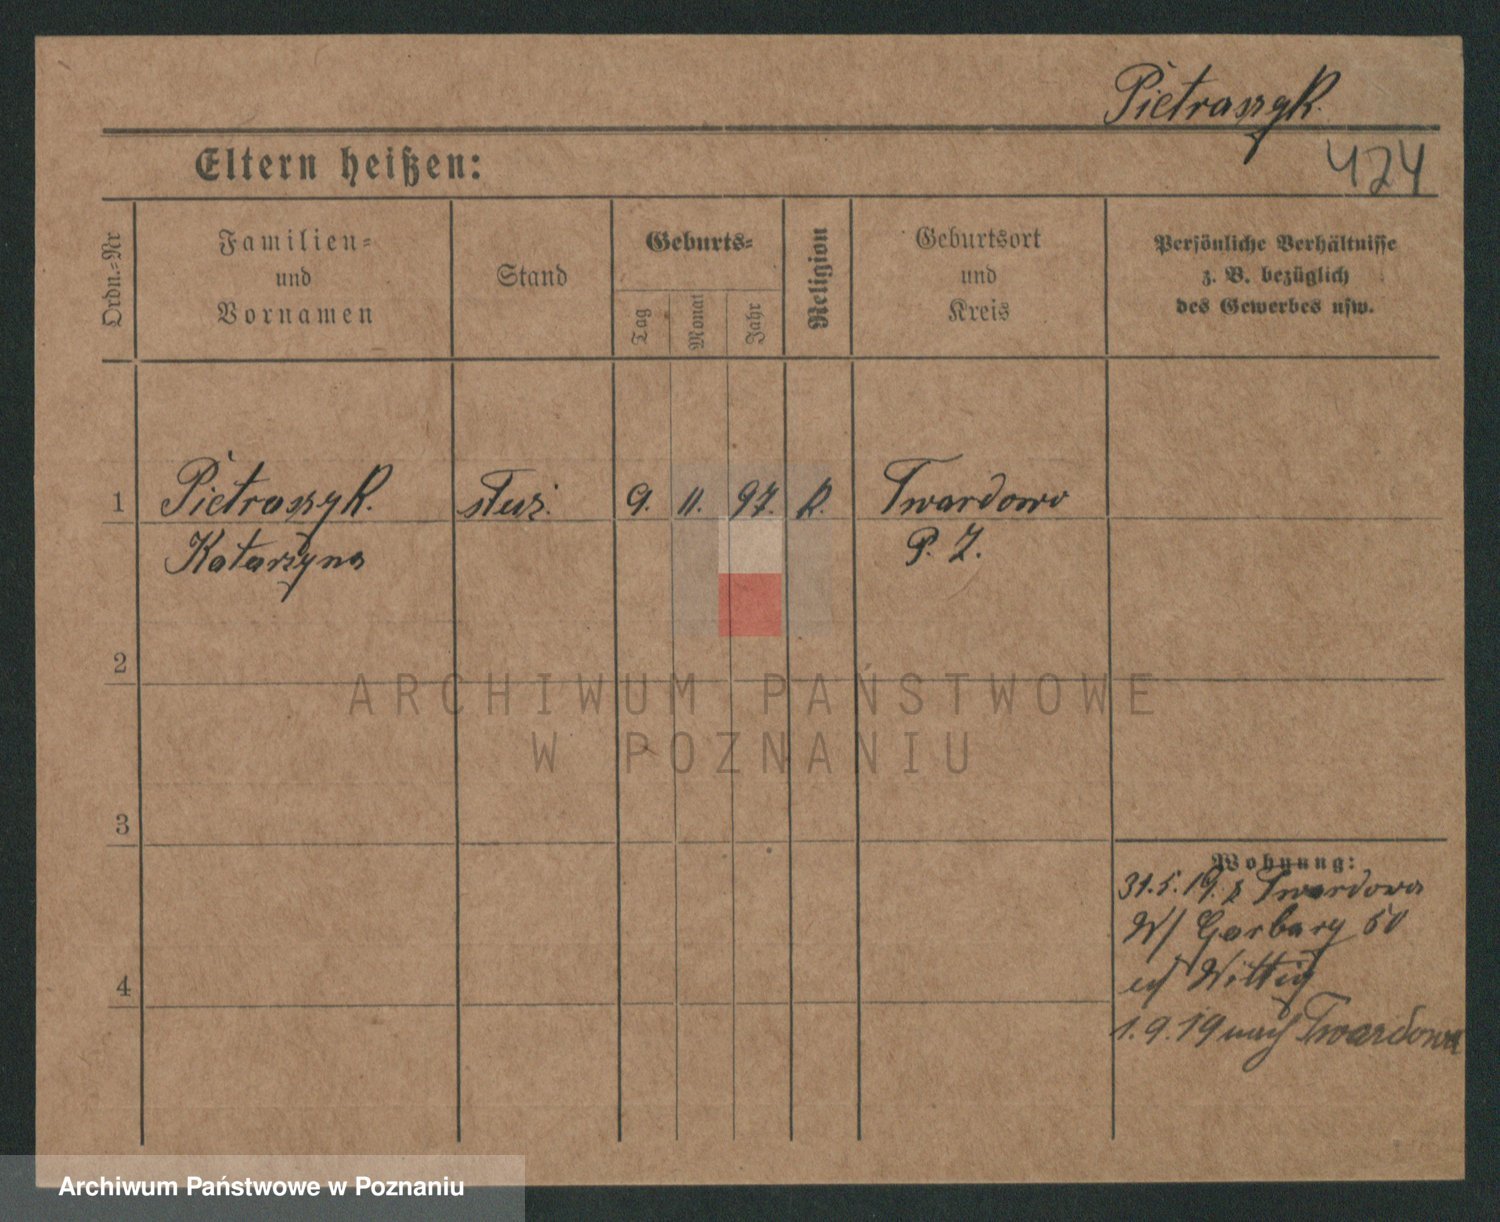 Pietraszyk.
Eltern heißen:
424
Ordn.=Nr
Familien=
und
Vornamen
Stand
Geburts=
Tag
Monat
Jahr
Religion
Geburtsort
und
Kreis
Persönliche Verhältnisse
z. B. bezüglich
des Gewerbes usw.
1 Pietraszyk. służ. 9. 11. 97. K. Twardowo
Katarzyna P. Z.
2
ARCHIWUM PAŃSTWOWE
W POZNANIU
3
Wohnung:
31.5.19. z Twardowa
W/ Garbary 50
Wittig
4
1.9.19 nach Twardowa
Archiwum Państwowe w Poznaniu